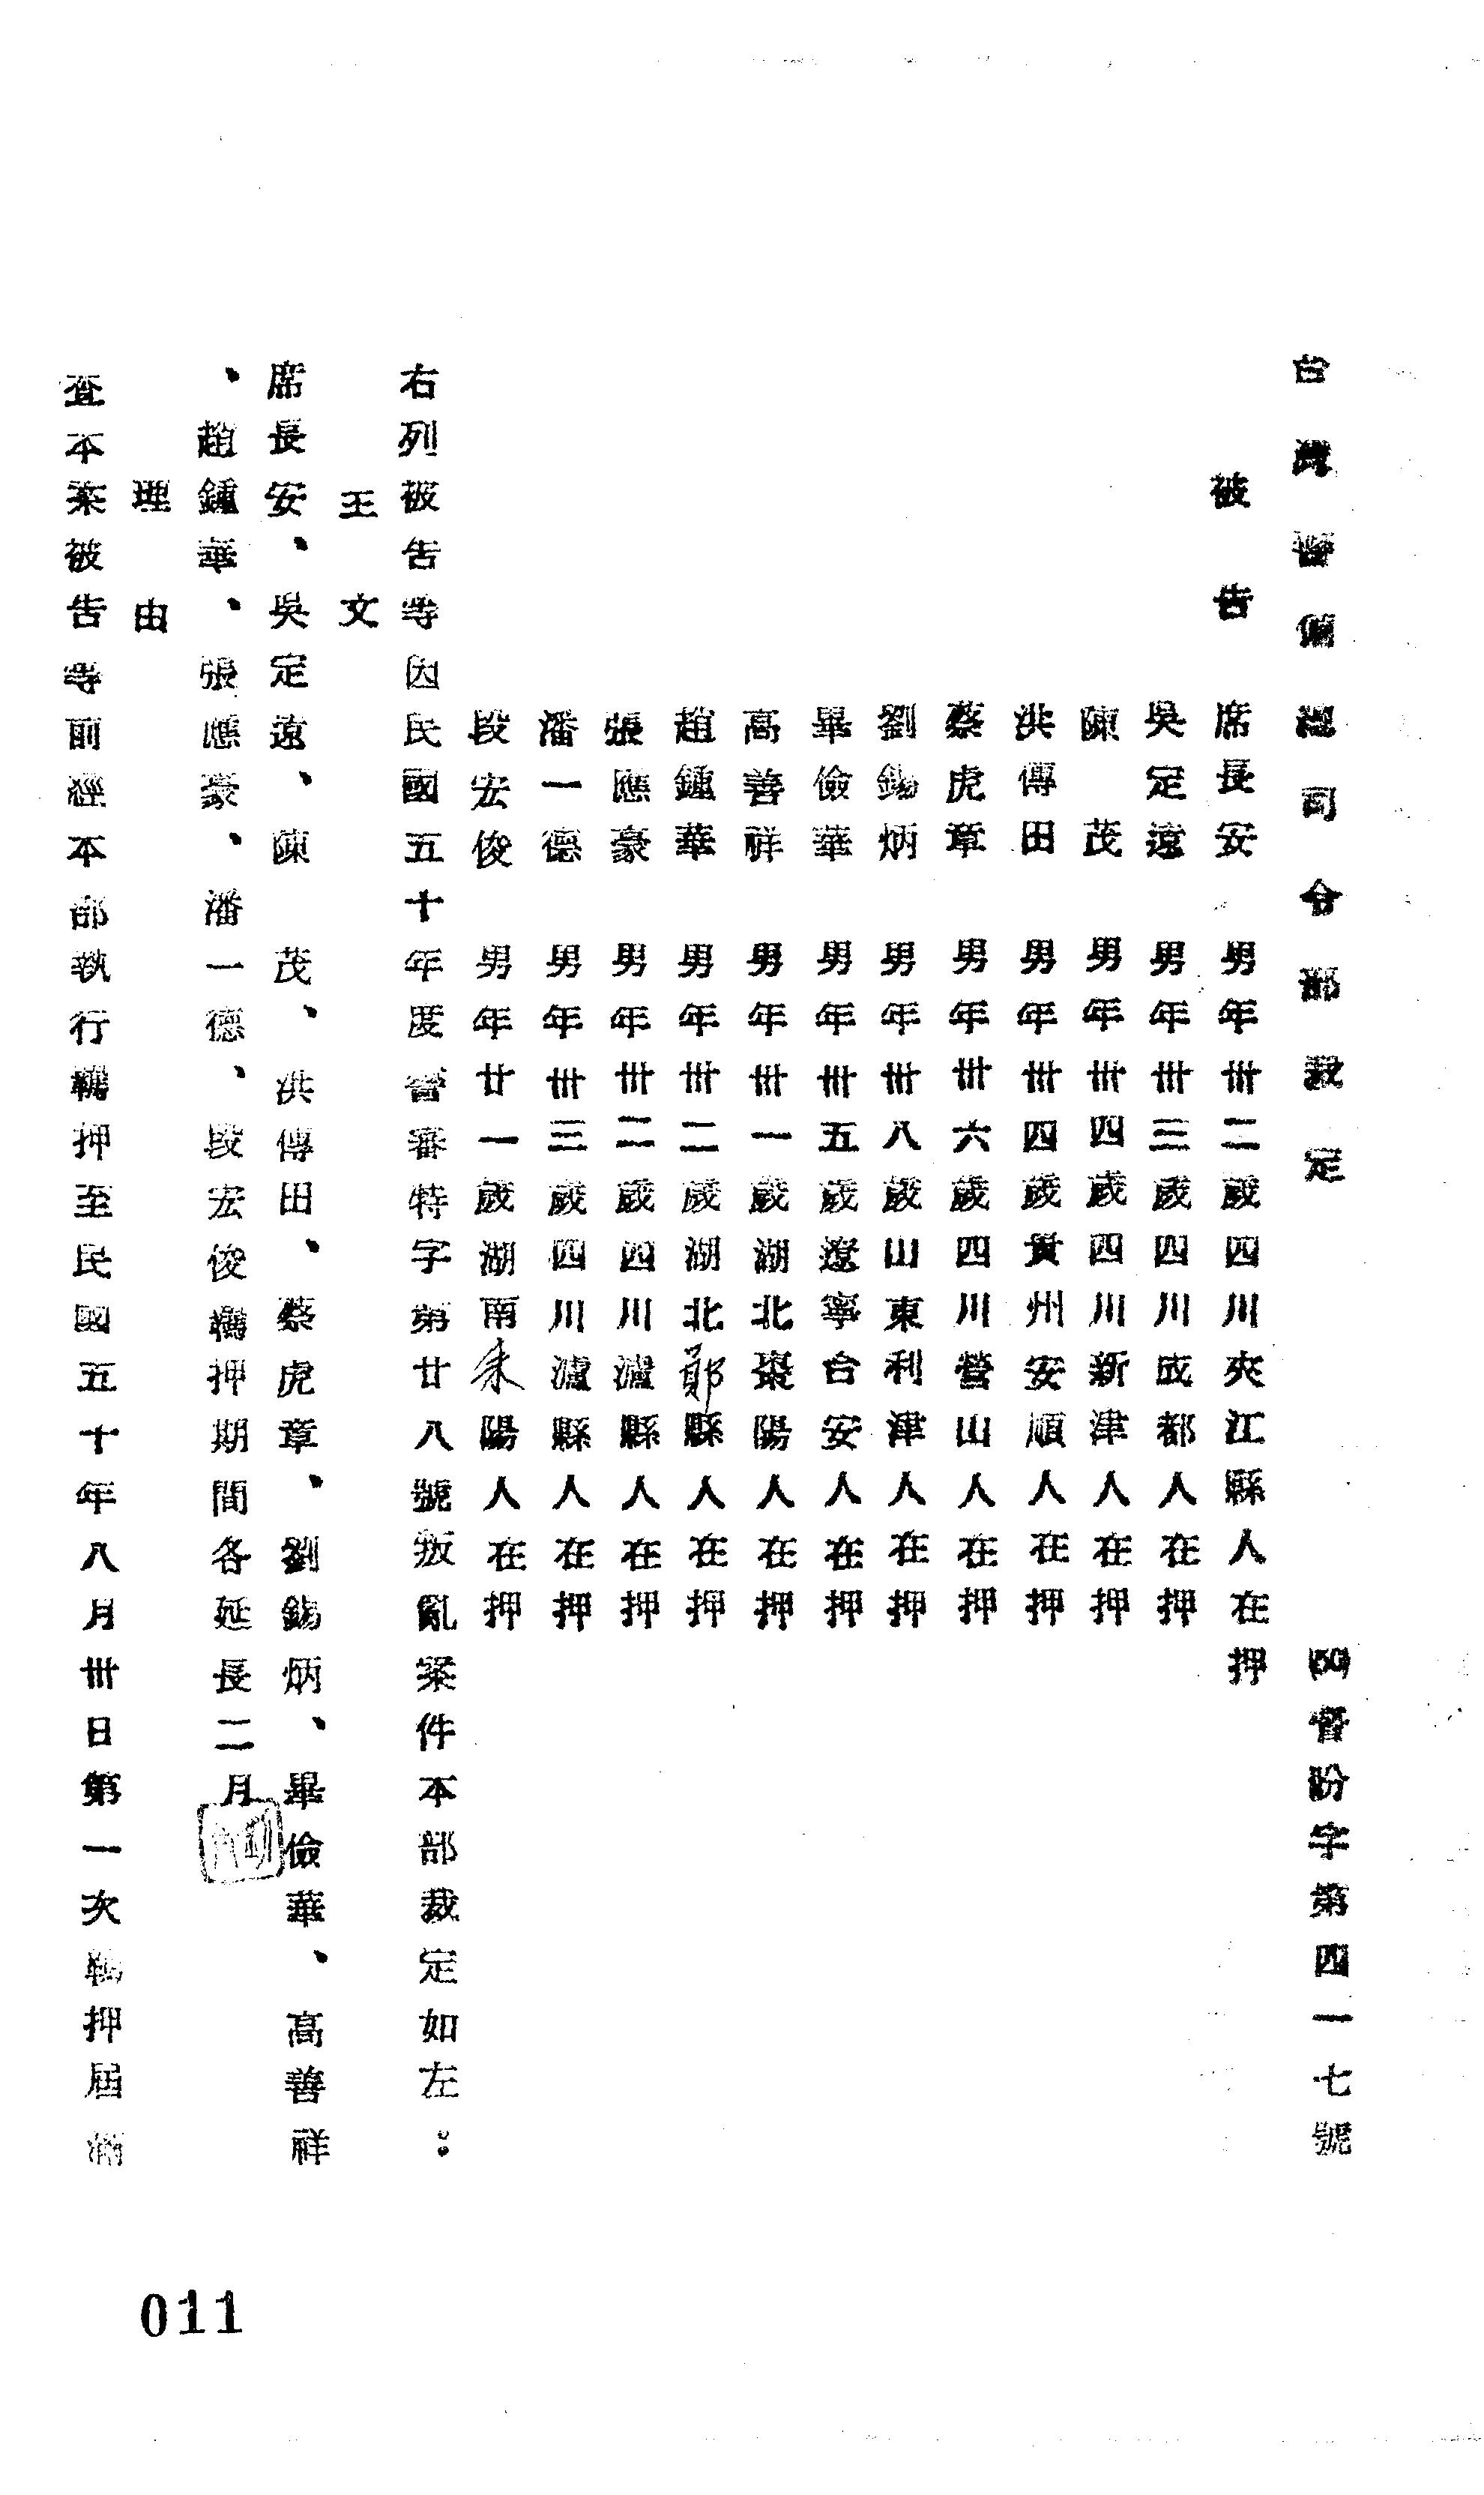 台灣警備總司令部裁定 (50)督盼字第四一七號
被告 席長安 男年卅二歲四川夾江縣人在押
吳定遠 男年卅三歲四川成都人在押
陳茂 男年卅四歲四川新津人在押
洪傳田 男年卅四歲貴州安順人在押
蔡虎章 男年卅六歲四川營山人在押
劉錫炳 男年卅八歲山東利津人在押
畢儉華 男年卅五歲遼寧台安人在押
高善祥 男年卅一歲湖北棗陽人在押
趙鍾華 男年卅二歲湖北鄖縣人在押
張應豪 男年卅二歲四川瀘縣人在押
潘一德 男年卅三歲四川瀘縣人在押
段宏俊 男年廿一歲湖南耒陽人在押
右列被告等因民國五十年度警審特字第廿八號叛亂案件本部裁定如左：
主文
席長安、吳定遠、陳茂、洪傳田、蔡虎章、劉錫炳、畢儉華、高善祥
、趙鍾華、張應豪、潘一德、段宏俊羈押期間各延長二月
理由
查本案被告等前經本部執行羈押至民國五十年八月卅日第一次羈押屆滿
011